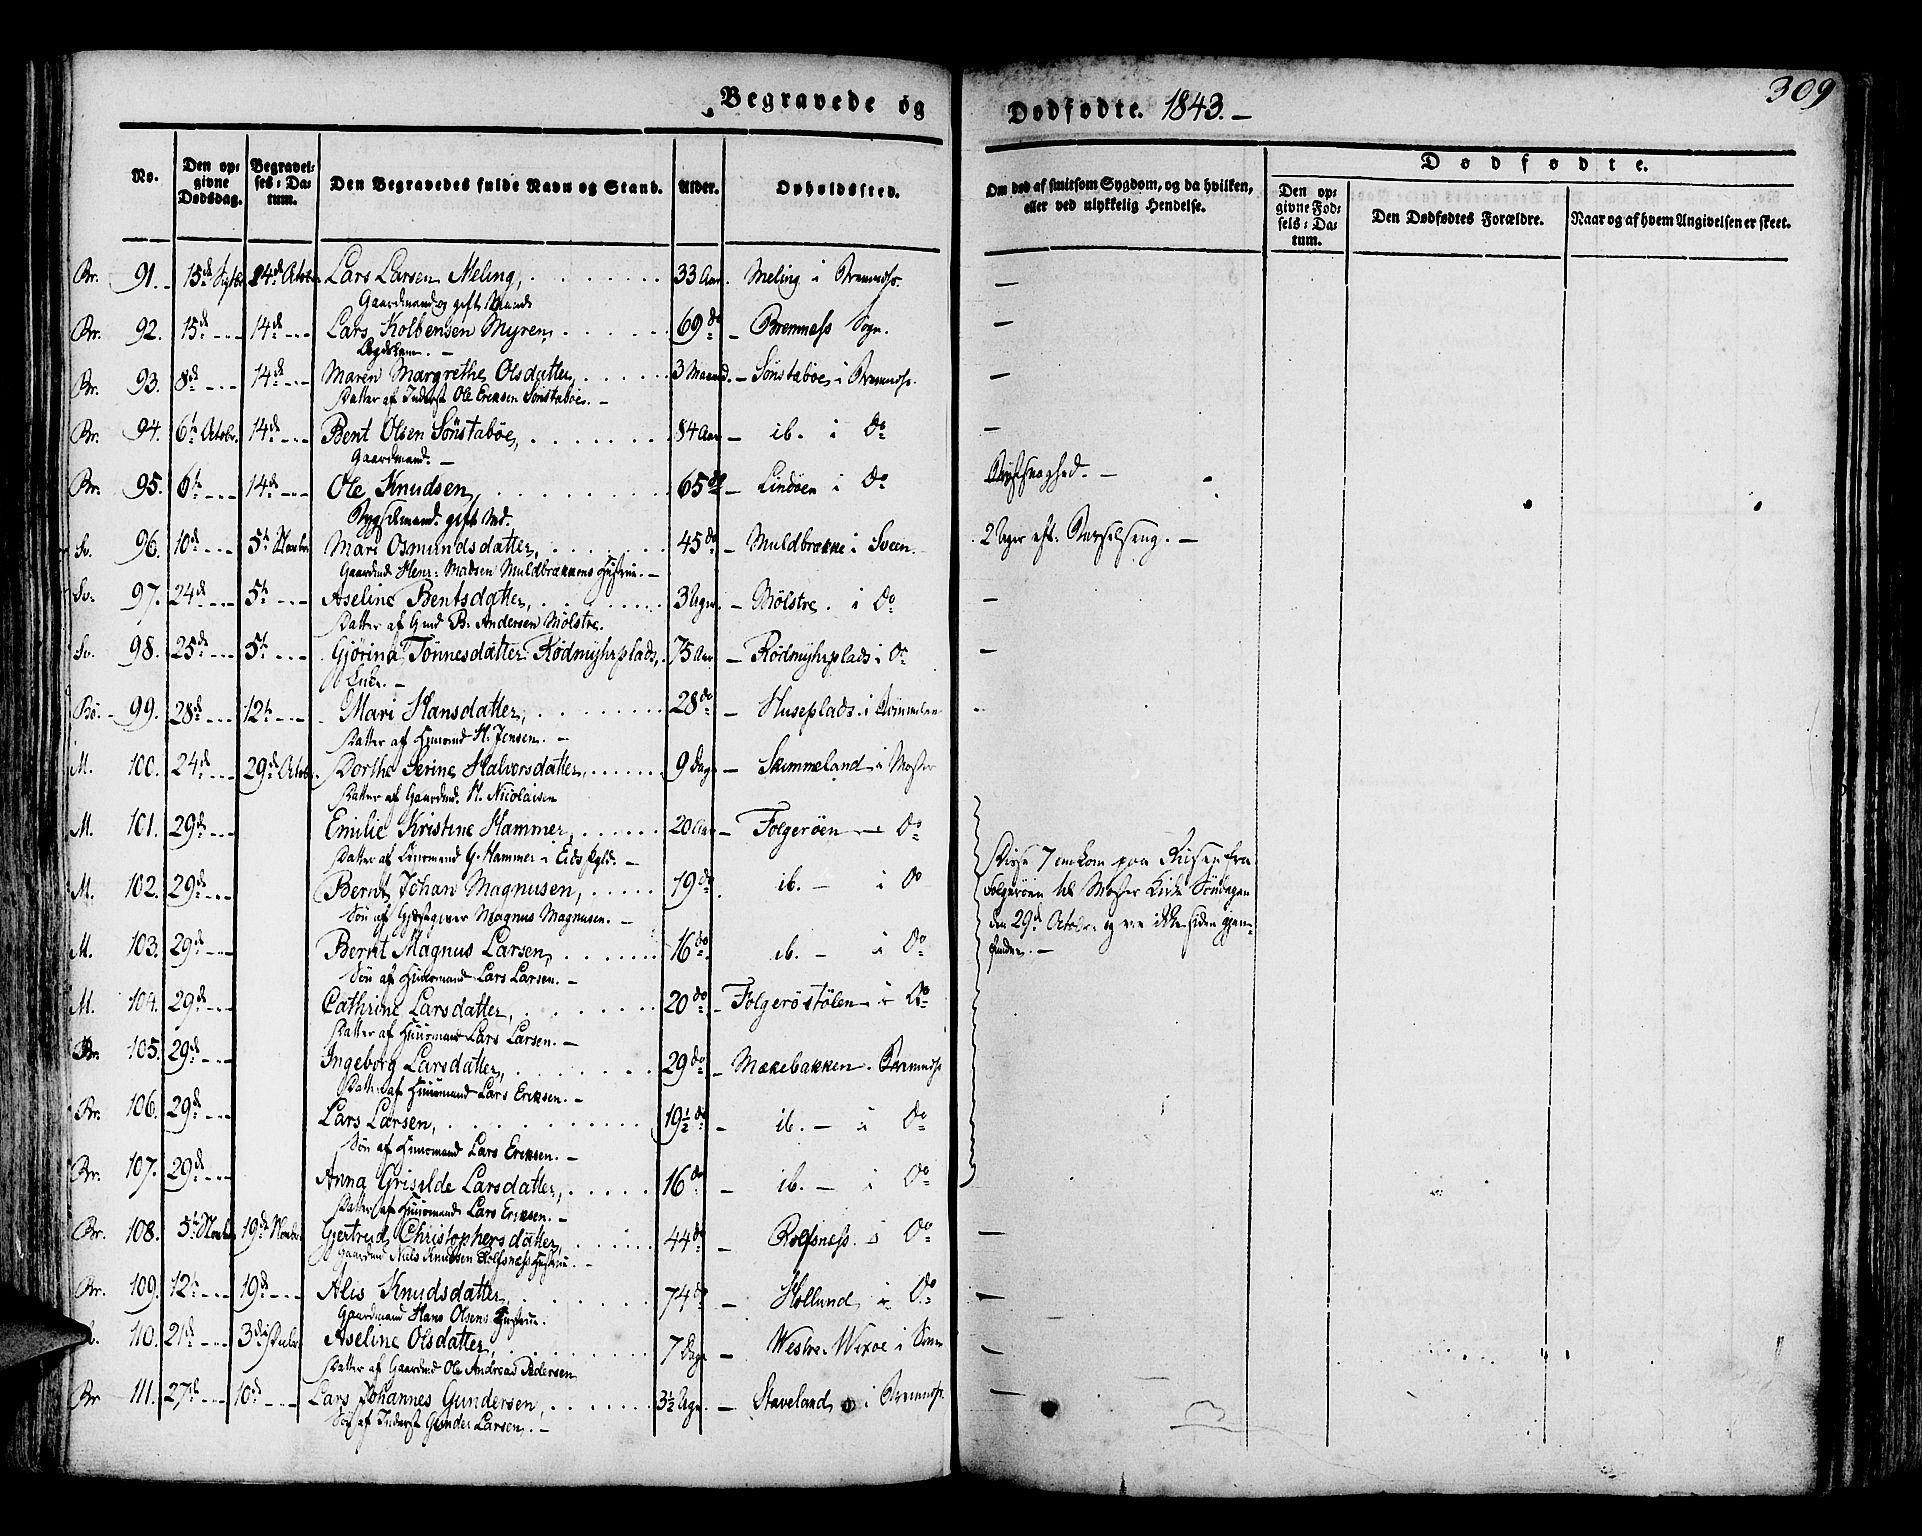 Begravede og
Dødfødte. 1843. –
309
No.
Den opgivne Dødsdag.
Begravelses-Datum.
Den Begravedes fulde Navn og Stand.
Alder.
Opholdssted.
Om død af smitsom Sygdom, og da hvilken, eller ved ulykkelig Hendelse.
Dødfødte.
Den opgivne Fødsels-Datum.
Den Dødfødtes Forældre.
Naar og af hvem Angivelsen er skeet.
Br. 91. 15de Septbr 14de Octobr Lars Larsen Meling, 33 Aar. Meling i Bremnæs. –
Gaardmand og gift Mand
Br. 92. 15de 14de Lars Kolbensen Myren, 69 do – Bremnæss Sogn. –
Lægdslem. –
Br. 93. 8de 14de Maren Margrethe Olsdatter, 3 Maaned. – Sønstabøe i Bremnæs. –
Datter af Inderst Ole Eriksen Sønstabøe. –
Br. 94. 6te Octobr. 14de Bent Olsen Sönstabøe, 84 Aar – ib. i Do –
Gaardmand. –
Br. 95. 6te 14de Ole Knudsen, 65 do – Lindøen i Do Brystsvaghed. –
Bygselmand gift
Sv. 96. 10de 5te Novbr Mari Osmundsdatter, 45 do – Muldbrække i Sveen. 2 Uger eft. Barselseng. –
Gaardmd Hens: Madsen Muldbrækkens Hustrue. –
Sv. 97. 24de 5te Aseline Bentsdatter, 3 Uger. – Mölstre. i Do –
Datter af Gmd B. Andersen Mölstre.
Sv. 98. 25de 5te Gjörina Tönnesdatter Rödmyhrplads, 75 Aar – Rödmyhrplads i Do –
Enke. –
Bö. – 99. 28de 12te Mari Hansdatter, 28 do – Huseplads i Bömmelen –
Datter af Huusmand H. Jensen. –
M. 100. 24de 29de Octobr. Dorthe Serine Halvorsdatter, 9 Dage – Skimmeland i Moster
Datter af Gaardmd. H. Nicolaisen
M. 101. 29de Emilie Kristine Hammer, 20 Aar – Folgeröen – i Do
Datter af G. Hammer i Eids
M. 102. 29de Bernt Johan Magnusen, 19 do. ib. – i Do
Sön af Gjæstgiver Magnus Magnusen. –
Disse 7 omkom paa Reisen fra
Folgeröen til Moster Kirke Söndagen
den 29de Octobr. og ere ikke siden gjen-
fundne. –
M. 103. 29de Bernt Magnus Larsen, 16 do ib. – i Do
Sön af Huusmand Lars Larsen. –
M. 104. 29de Cathrine Larsdatter, 20 do – Folgeröstölen – i Do
Datter af Huusmand Lars Larsen. –
Br. 105. 29de Ingeborg Larsdatter, 29 do – Mækebakken. Bremnæs
Datter af Huusmand Lars Eriksen. –
Br. 106. 29de Lars Larsen, 19½ do – ib. – i Do
Sön af Huusmand Lars Eriksen. –
Br. 107. 29de Anna Griselde Larsdatter, 16 do – ib. – i Do
Datter af Huusmand Lars Eriksen. –
Br. 108. 5te Novbr 19de Novbr Gjertrud Christophersdatter, 44 do – Rolfsnæss. i Do –
Gaardmd Niels Knudsen Rolfsnæss Hustrue. –
Br. 109. 12te 19de Alis Knudsdatter, 74 do – Hollund i Do –
Gaardmand Hans Olsens Hustrue.
110. 21de 3die Decbr Aseline Olsdatter, 7 Dage – Westre Wixöe i –
Datter af Gaardmd Ole Andreas Pedersen
Br 111. 27de 10de Lars Johannes Gundersen, 3½ Uge. – Staveland i Bremnæs. –
Sön af Inderst Gunder Larsen. –